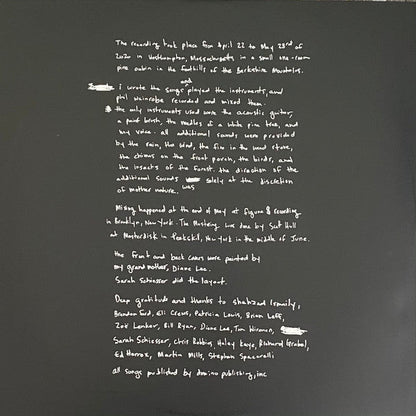 The recording took place from April 22 to May 23rd of
2020 in Westhampton, Massachusetts in a small one-room
pine cabin in the foothills of the Berkshire Mountains.
and
i wrote the songs played the instruments, and
phil weinrobe recorded and mixed them.
the only instruments used were the acoustic guitar,
a paint brush, the needles of a white pine tree, and
my voice. all additional sounds were provided
by the rain, the wind, the fire in the wood stove,
the chimes on the front porch, the birds, and
the insects of the forest. the direction of the
additional sounds was solely at the discretion
of mother nature.
Mixing happened at the end of May at figure 8 recording
in Brooklyn, New York. The Mastering was done by Scott Hull
at Masterdisk in Peekskill, New York in the middle of June.
the front and back covers were painted by
my grandmother, Diane Lee.
Sarah Schiesser did the layout.
Deep gratitude and thanks to shahzad Ismaily,
Brandon Ford, Eli Crews, Patricia Lewis, Brian Leff,
Zoë Lenker, Bill Ryan, Diane Lee, Tom Wironen,
Sarah Schiesser, Chris Robbins, Haley Kaye, Richard Grabel,
Ed Horrox, Martin Mills, Stephen Spacarelli
all songs published by domino publishing, inc